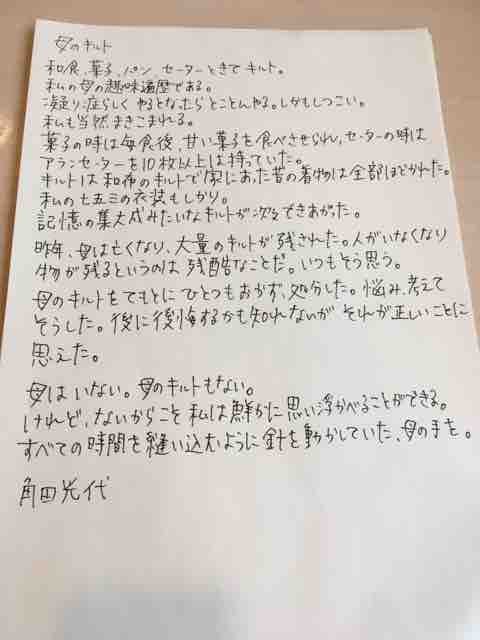 母のキルト
和食、菓子、パン、セーターときてキルト。
私の母の趣味遍歴である。
凝り症らしくやるとなったらとことんやる。しかもしつこい。
私も当然まきこまれる。
菓子の時は毎食後、甘い菓子を食べさせられ、セーターの時は
アランセーターを10枚以上は持っていた。
キルトは和布のキルトで家にあった昔の着物は全部ほどかれた。
私の七五三の衣装もしかり。
記憶の集大成みたいなキルトが次々できあがった。
昨年、母は亡くなり、大量のキルトが残された。人がいなくなり
物が残るというのは残酷なことだ。いつもそう思う。
母のキルトをてもとにひとつもおかず、処分した。悩み、考えて
そうした。後に後悔するかも知れないが それが正しいことに
思えた。
母はいない。母のキルトもない。
けれど、ないからこそ私は鮮かに思い浮かべることができる。
すべての時間を縫い込むように針を動かしていた、母の手を。
角田光代